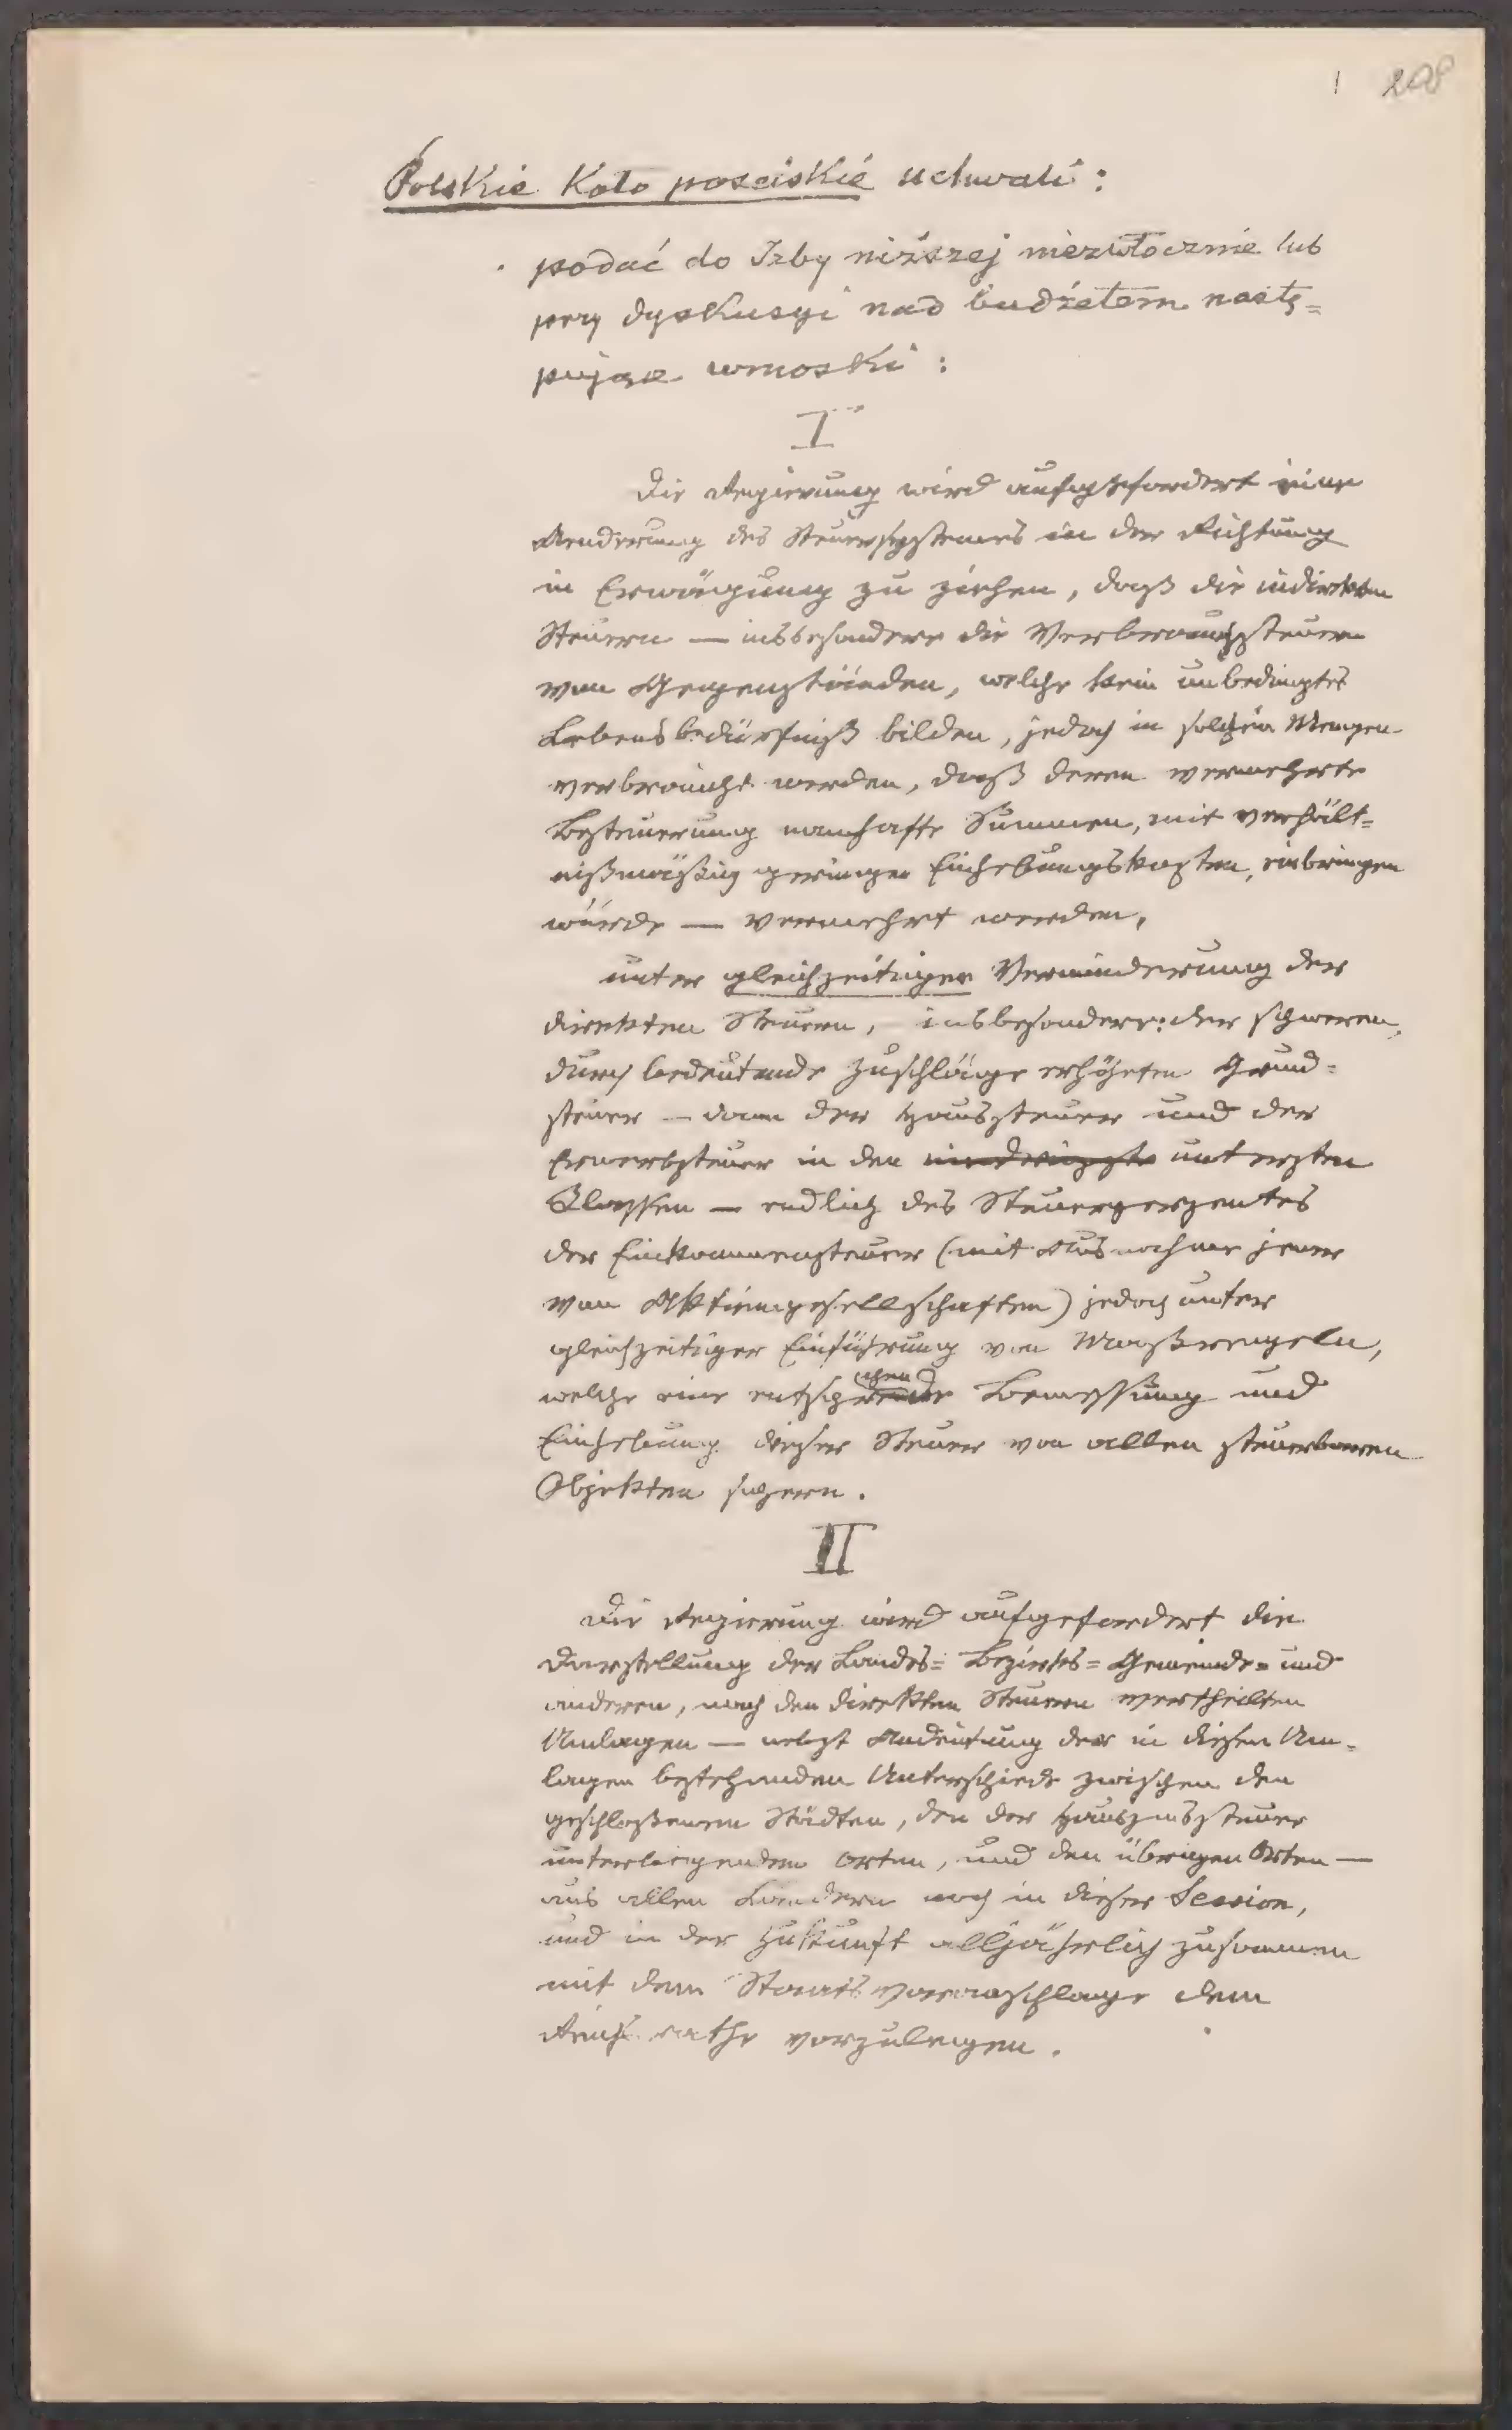 1 208
Polskie Koło poselskie uchwali:
podać do Izby niższej niezwłocznie lub
przy dyskusyi nad budżetem nastę=
pujące wnioski:
I
Die Regierung wird aufgefordert eine
Aenderung des Steuersystemes in der Richtung
in Erwägung zu ziehen, daß die indirekten
Steuern — insbesondere die Verbrauchssteuern
von Gegenständen, welche kein unbedingtes
Lebensbedürfniß bilden, jedoch in solchen Mengen
verbraucht werden, daß deren vermehrte
Besteuerung namhafte Summen, mit verhält=
nißmäßig geringen Einhebungskosten, einbringen
würde — vermehrt werden,
unter gleichzeitiger Verminderung der
direkten Steuern, insbesondere: der schweren,
durch bedeutende Zuschläge erhöhten Grund=
steuer — dann der Haussteuer und der
Erwerbsteuer in den niedrigste untersten
Klassen — endlich des Steuerperzentes
der Einkommensteuer (mit Ausnahme jener
von Aktiengesellschaften) jedoch unter
gleichzeitiger Einführung von Maaßregeln,
welche eine Bemessung und
Einhebung dieser Steuer von allen steuerbaren
Objekten sichern.
II
Die Regierung wird aufgefordert die
Darstellung der Landes= Bezirks= Gemeinde= und
anderen, nach den direkten Steuern vertheilten
Umlagen — nebst Andeutung der in diesen Um=
lagen bestehenden Unterschiede zwischen den
geschloßenen Städten, den der Hauszinssteuer
unterliegenden Orten, und den übrigen Orten —
aus allen Ländern noch in dieser Session,
und in der Zukunft alljährlich zusammen
mit dem Staatsvoranschlage dem
Reichsrathe vorzulegen.